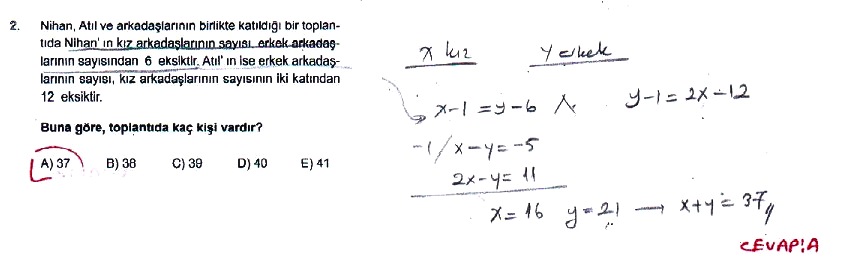 2. Nihan, Atıl ve arkadaşlarının birlikte katıldığı bir toplan-
tıda Nihan' ın kız arkadaşlarının sayısı, erkek arkadaş-
larının sayısından 6 eksiktir. Atıl' ın ise erkek arkadaş-
larının sayısı, kız arkadaşlarının sayısının iki katından
12 eksiktir.
Buna göre, toplantıda kaç kişi vardır?
A) 37 B) 38 C) 39 D) 40 E) 41
x kız y erkek
x-1 = y-6 ∧ y-1 = 2x-12
-1/ x-y = -5
2x-y = 11
x = 16 y = 21 → x+y = 37//
CEVAP:A